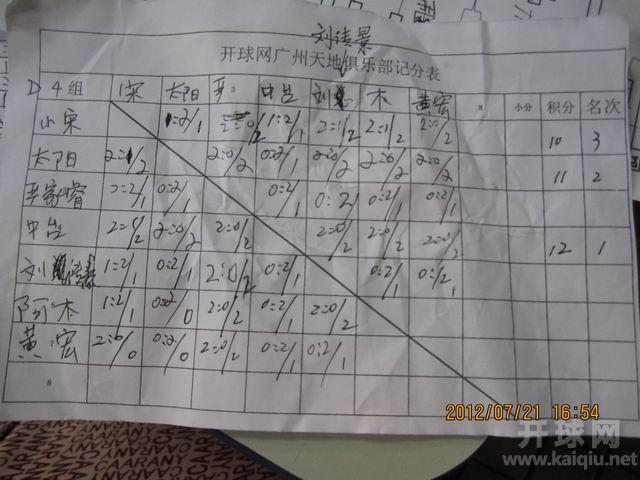 刘传景
开球网广州天地俱乐部记分表
D 4组 小宋 太阳 中岂 刘 木 黄宏 8 小分 积分 名次
小宋 1:2/1 2:0/2 1:2/1 2:1/2 2:1/2 2:0/2 10 3
太阳 2:1/2 2:0/2 0:2/1 2:0/2 2:0/2 2:0/2 11 2
李家睿 0:2/1 0:2/1 0:2/1 0:2 0:2/1 0:2/1
中岂 2:1/2 2:0/2 2:0/2 2:0/2 2:0/2 2:0/2 12 1
刘 1:2/1 0:2/1 2:0/2 0:2/1 0:2/1 0:/1
阿木 1:2/1 0:2/0 2:0/2 0:2/1 2:0/2
黄宏 2:0/0 0:2/0 2:0/2 0:2/1 0:2/1
8
2012/07/21 16:54
开球网
www.kaiqiu.net